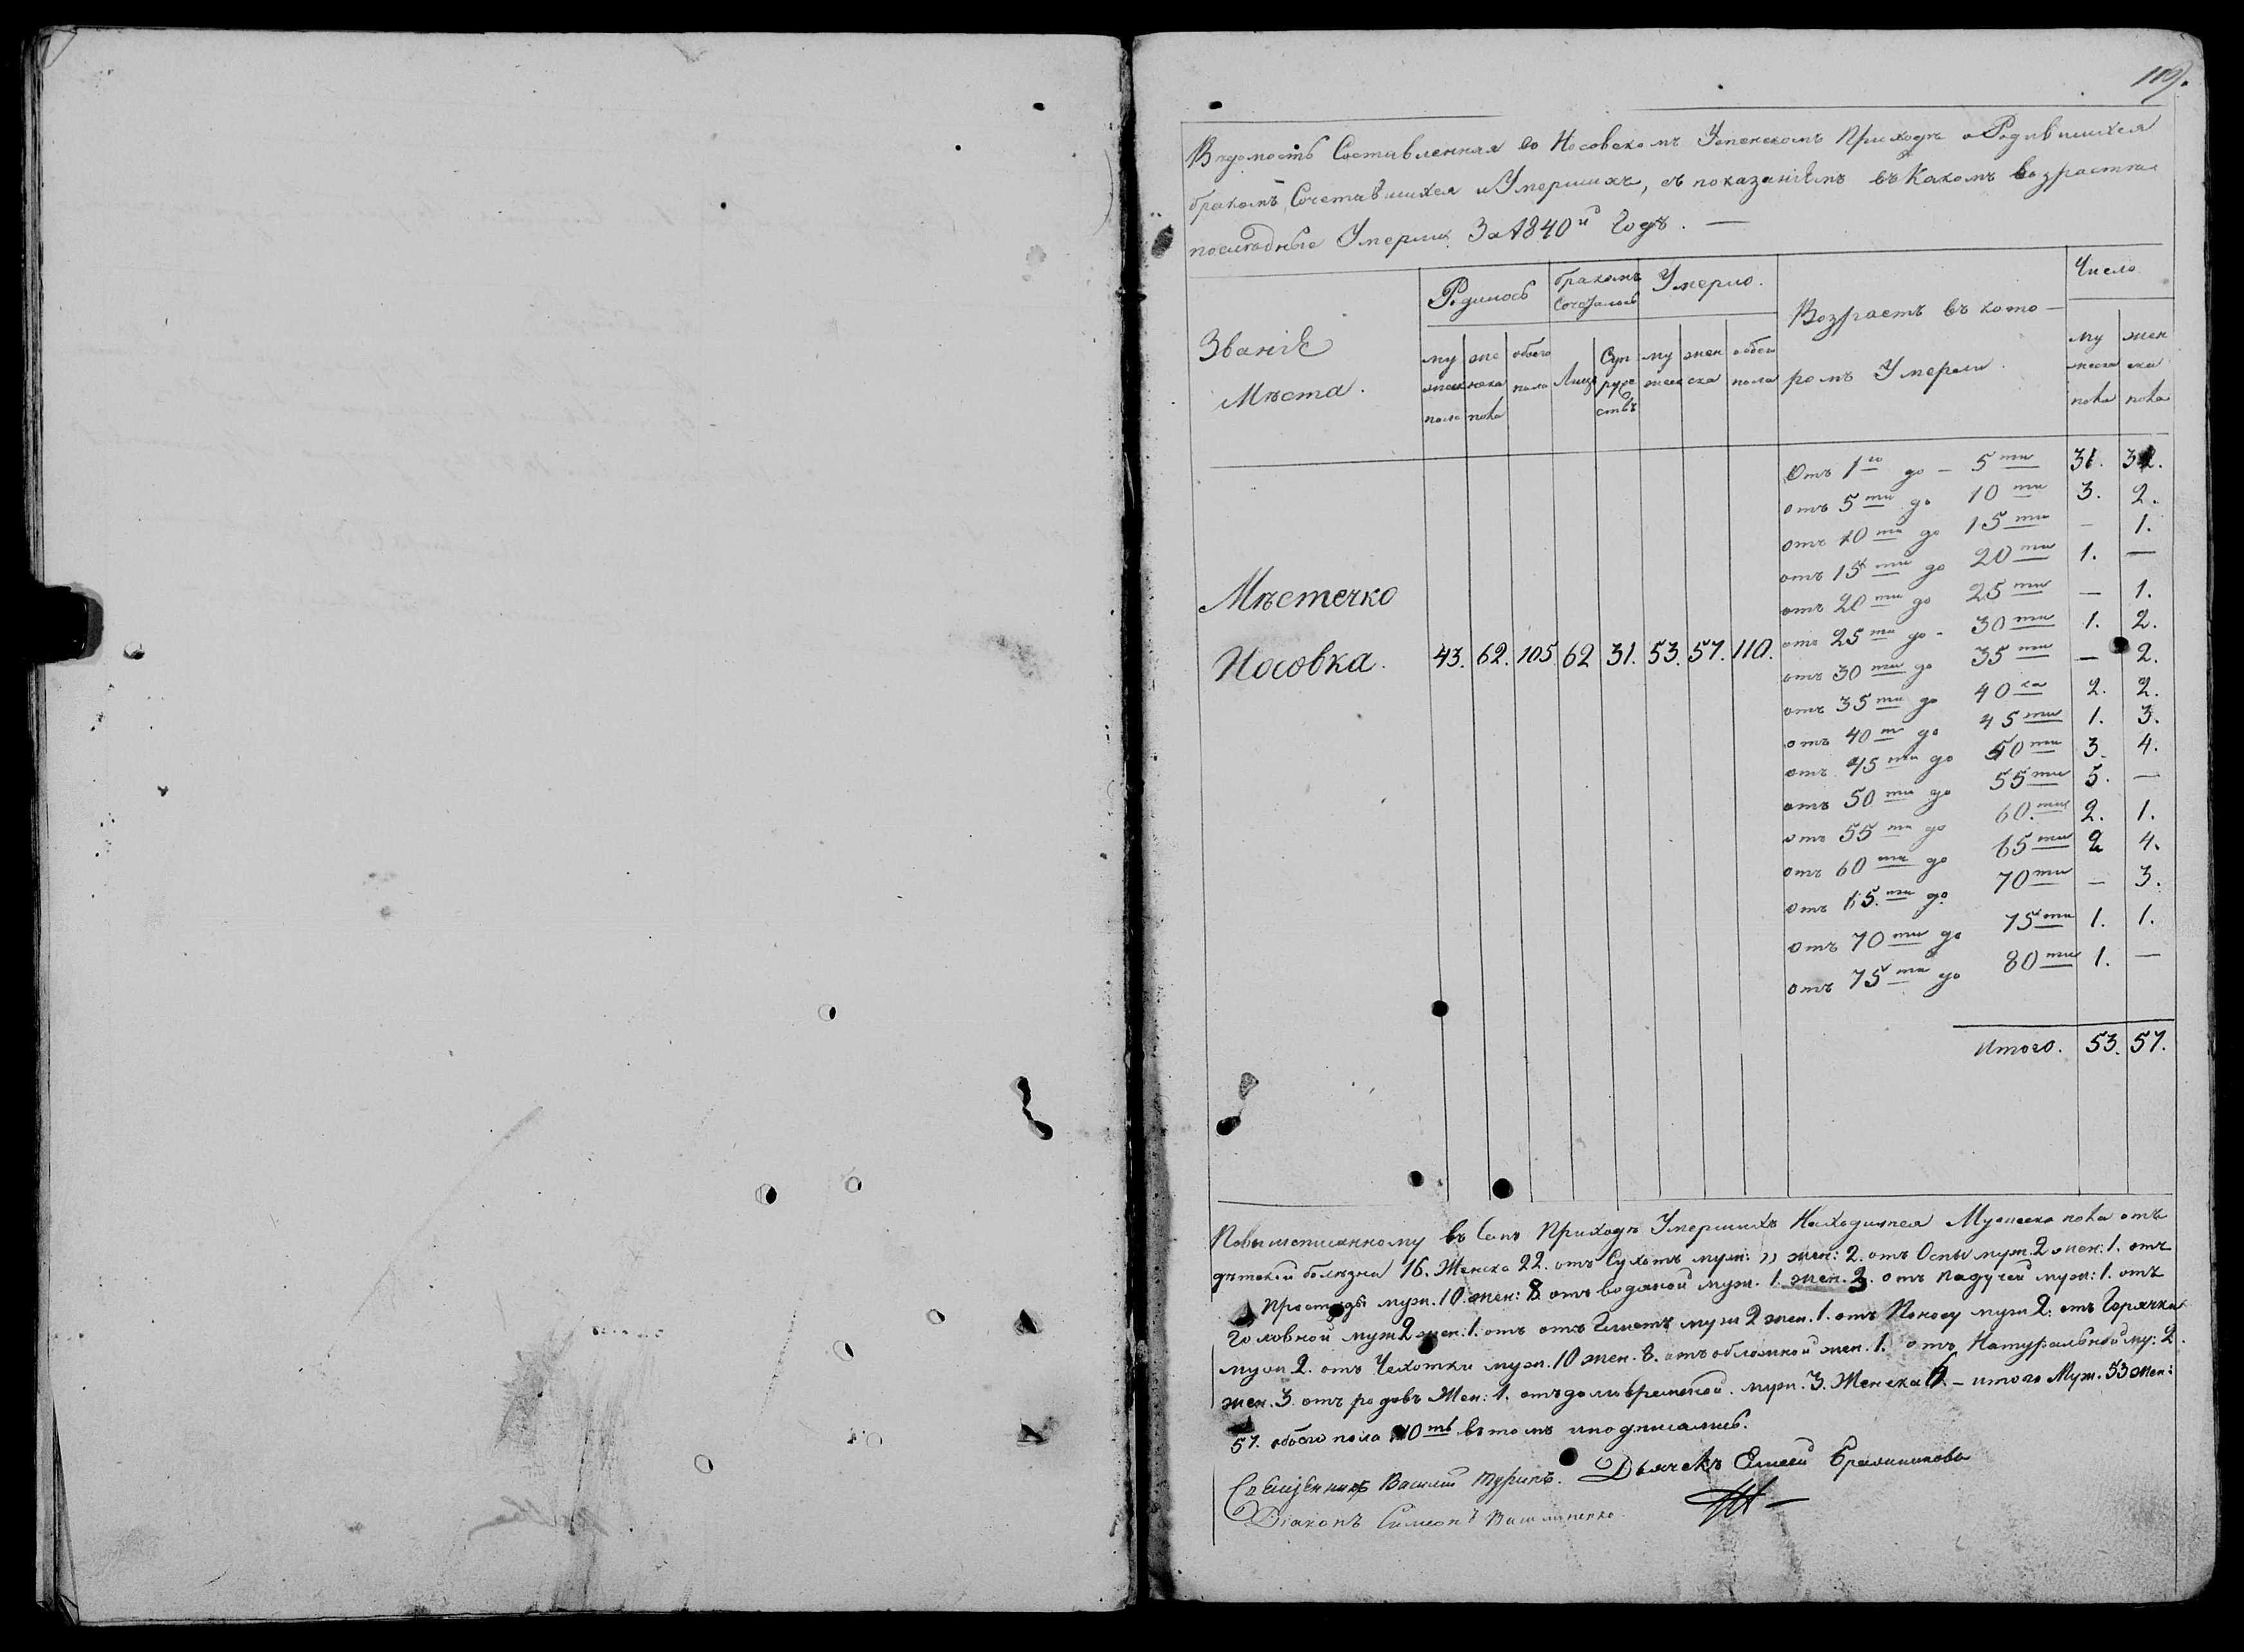 119.
Вѣдомость Составленная во Носовскомъ Успенскомъ Приходѣ о Родившихся
бракомъ Сочетавшихся и Умершихъ, съ показаніемъ въ Какомъ возрастѣ
последные Умерли За 1840й Годъ. —
Званіе Мѣста.
Родилось
бракомъ Сочеталось
Умерло.
Возрастъ въ кото-
ромъ Умерли.
Число
мужеска пола
женска пола
обоего пола
Лицъ
Супружествъ
мужеска
женска
обоего пола
мужеска пола
женска пола
Отъ 1го до - 5ти 31. 32.
отъ 5ти до 10ти 3. 2.
отъ 10ти до 15ти - 1.
отъ 15ти до 20ти 1. —
отъ 20ти до 25ти — 1.
отъ 25ти до - 30ти 1. 2.
отъ 30ти до 35ти — 2.
отъ 35ти до 40ка 2. 2.
отъ 40ти до 45ти 1. 3.
отъ 45ти до 50ти 3. 4.
отъ 50ти до 55ти 5. —
отъ 55ти до 60.ти 2. 1.
отъ 60ти до 65ти 2 4.
отъ 65.ти до 70ти — 3.
отъ 70ти до 75ти 1. 1.
отъ 75ти до 80ти 1. —
Мѣстечко
Носовка. 43. 62. 105. 62 31. 53. 57. 110.
Итого. 53. 57.
Повышеписанному въ Семъ Приходѣ Умершихъ Находится Мужеска пола отъ
дѣтской болѣзни 16. Женска 22. отъ Сухотъ муж: „ жен: 2. отъ Оспы муж. 2 жен: 1. отъ
Простуды муж. 10. жен: 8. отъ водяной муж. 1. жен. 3. отъ падучей муж: 1. отъ
Головной муж 2 жен: 1. отъ отъ Глистъ муж 2 жен. 1. отъ Поносу муж 2. отъ Горячки
муж 2. отъ Чехотки муж. 10 жен. 8. отъ обложной жен. 1. отъ Натуральной му: 2.
жен. 3. отъ родовъ Жен: 1. отъ долговременной. муж. 3. Женска 6. - итого Муж. 53 жен:
57. обоего пола 110ть въ томъ и подписались.
Священникъ Василій Турикъ. Дьячекъ Елисей
Діаконъ Симеонъ